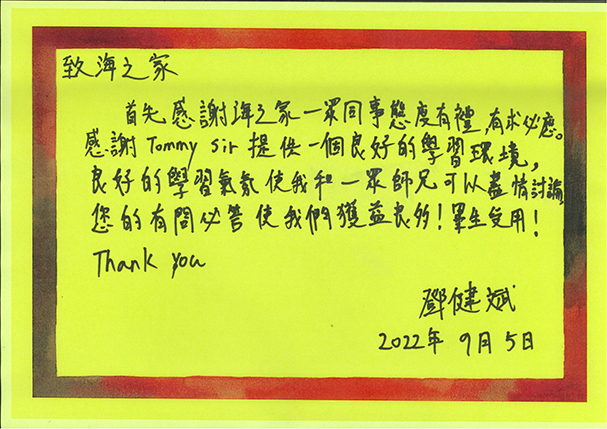 致海之家
首先感謝海之家一眾同事態度有禮,有求必應。
感謝 Tommy Sir 提供一個良好的學習環境,
良好的學習氣氛使我和一眾師兄可以盡情討論,
您的有問必答使我們獲益良多!畢生受用!
Thank you
鄧健斌
2022年9月5日